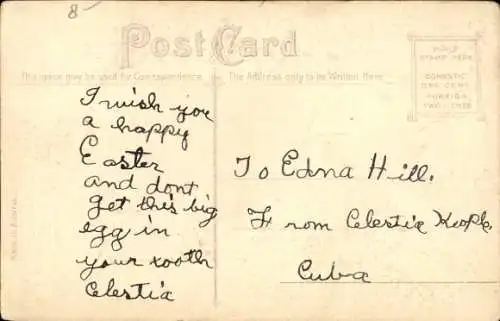 8-
Post Card
This space may be used for Correspondence.
The Address only to be Written Here.
PLACE
STAMP HERE
DOMESTIC
ONE CENT
FOREIGN
TWO CENTS
I wish you
a happy
Easter
and dont
get this big
egg in
your tooth
Celestia
To Edna Hill.
From Celestia
Cuba